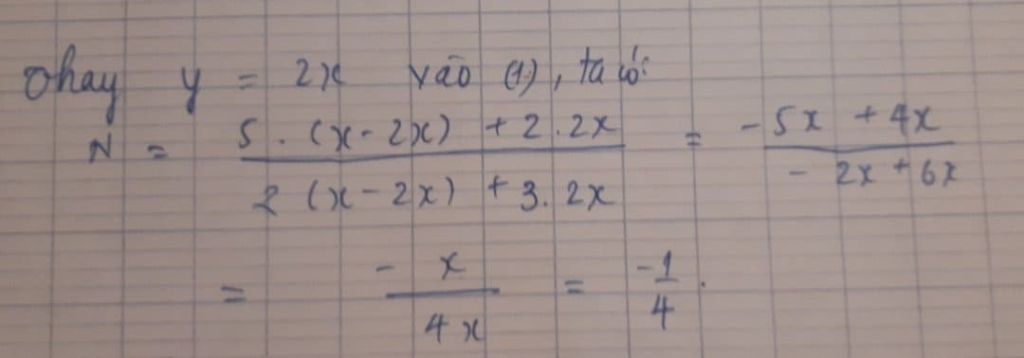 Thay y = 2x vào (1), ta có:
N = \frac{5 . (x - 2x) + 2 . 2x}{2 (x - 2x) + 3 . 2x} = \frac{-5x + 4x}{-2x + 6x}
= \frac{-x}{4x} = \frac{-1}{4} .